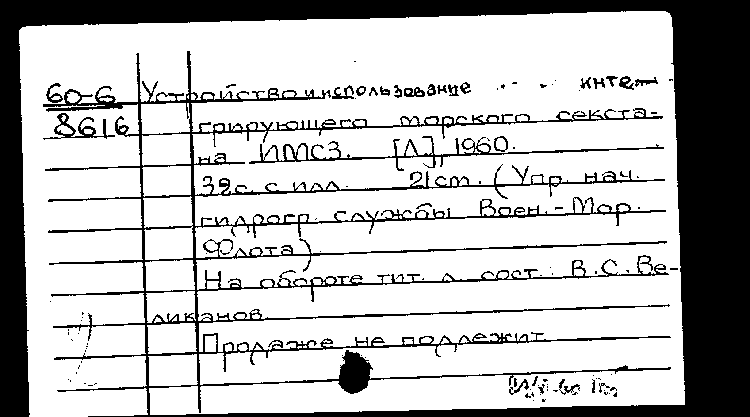 60-6 Устройство и использование инте-
8616 грирующего морского секста-
на ИМСЗ. [Л.], 1960.
32с. с илл. 21см. (Упр. нач.
гидрогр. службы Воен.-Мор.
Флота)
На обороте тит. л. сост.: В.С. Ве-
ликанов.
Продаже не подлежит